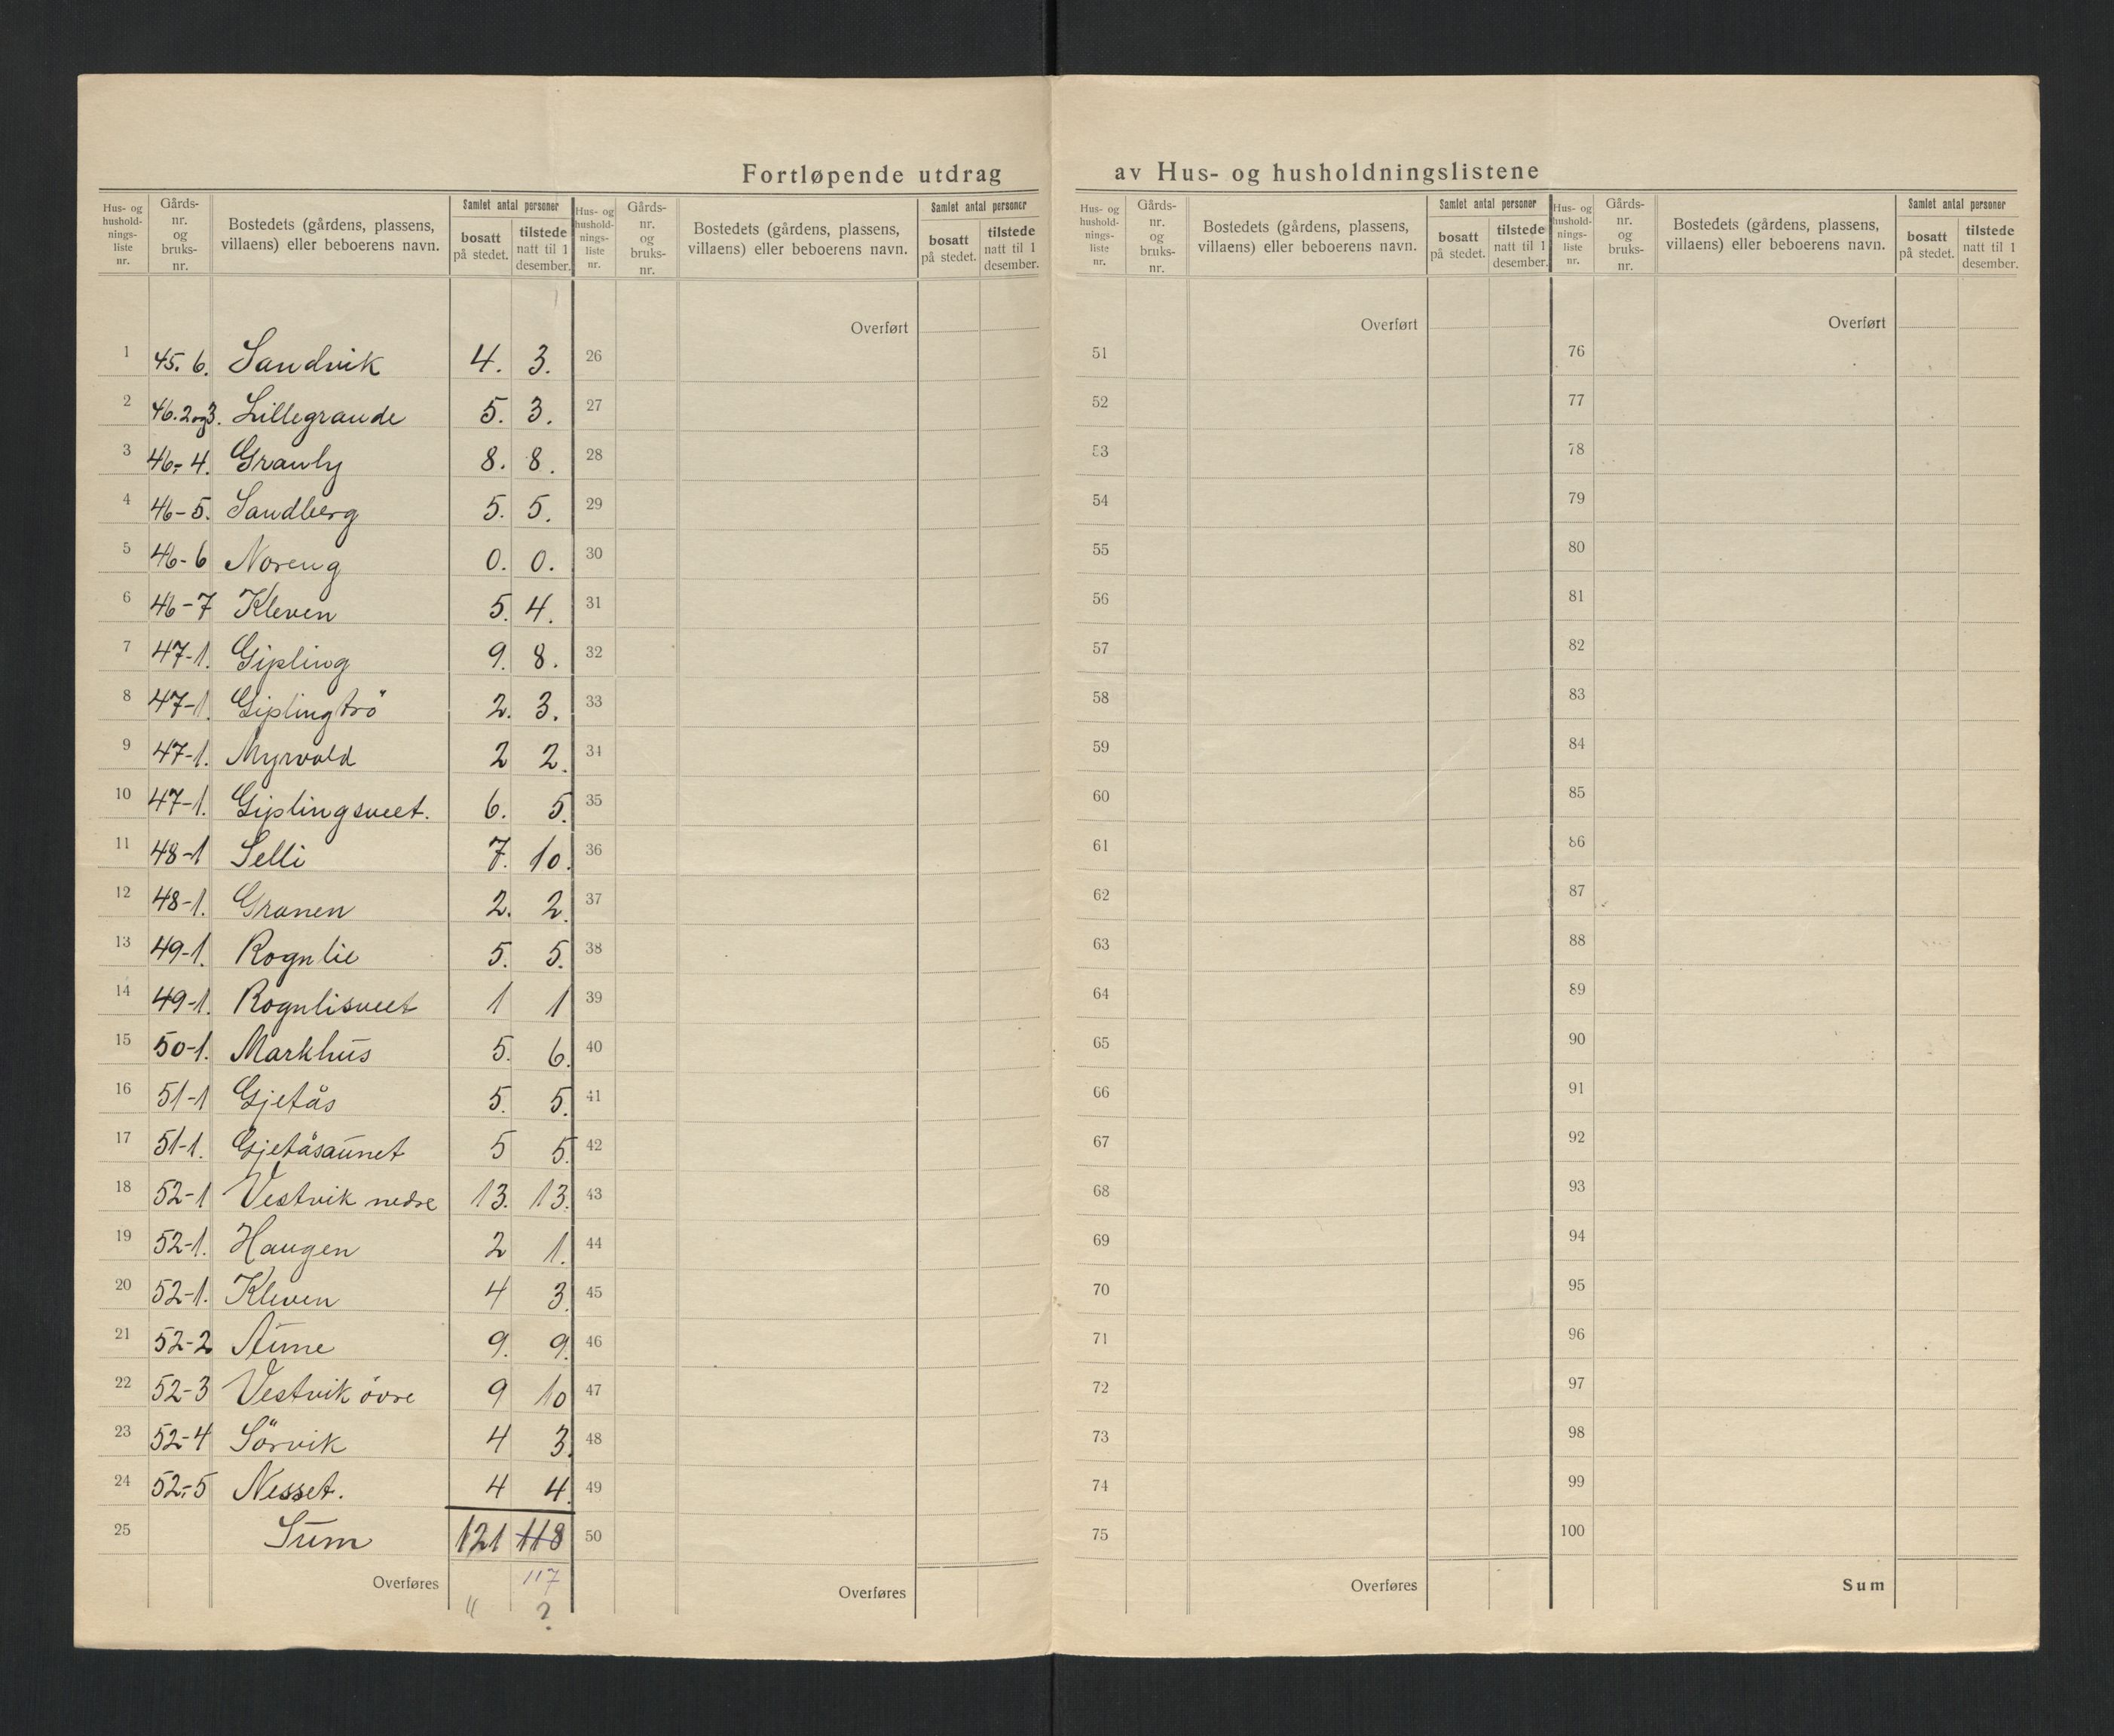 Fortløpende utdrag av Hus- og husholdningslistene
Hus- og hushold- nings- liste nr. Gårds- nr. og bruks- nr. Bostedets (gårdens, plassens, villaens) eller beboerens navn. Samlet antal personer bosatt på stedet. tilstede natt til 1 desember.
Hus- og hushold- nings- liste nr. Gårds- nr. og bruks- nr. Bostedets (gårdens, plassens, villaens) eller beboerens navn. Samlet antal personer bosatt på stedet. tilstede natt til 1 desember.
Hus- og hushold- nings- liste nr. Gårds- nr. og bruks- nr. Bostedets (gårdens, plassens, villaens) eller beboerens navn. Samlet antal personer bosatt på stedet. tilstede natt til 1 desember.
Hus- og hushold- nings- liste nr. Gårds- nr. og bruks- nr. Bostedets (gårdens, plassens, villaens) eller beboerens navn. Samlet antal personer bosatt på stedet. tilstede natt til 1 desember.
Overført Overført Overført
1 45. 6. Sandvik 4. 3. 26 51 76
2 46. 2 og 3. Lillegrande 5. 3. 27 52 77
3 46- 4. Granly 8. 8. 28 53 78
4 46-5. Sandberg 5. 5. 29 54 79
5 46-6 Noreng 0. 0. 30 55 80
6 46-7 Kleven 5. 4. 31 56 81
7 47-1. Gipling 9. 8. 32 57 82
8 47-1. Giplingtrö 2. 3. 33 58 83
9 47-1. Myrvold 2 2. 34 59 84
10 47-1. Giplingsveet. 6. 5. 35 60 85
11 48-1 Selli 7. 10. 36 61 86
12 48-1. Granen 2. 2. 37 62 87
13 49-1. Rognlie 5. 5. 38 63 88
14 49-1. Rognlisveet 1 1 39 64 89
15 50-1. Markhus 5. 6. 40 65 90
16 51-1 Gjetås 5. 5. 41 66 91
17 51-1. Gjetåsaunet 5 5. 42 67 92
18 52-1 Vestvik nedre 13. 13. 43 68 93
19 52-1. Haugen 2 1. 44 69 94
20 52-1. Kleven 4 3. 45 70 95
21 52-2 Aune 9. 9. 46 71 96
22 52-3 Vestvik övre 9 10 47 72 97
23 52-4 Sörvik 4 3. 48 73 98
24 52-5 Nesset. 4 4. 49 74 99
25 Sum 121 118 50 75 100
117
Overføres Overføres Overføres Sum
" ?